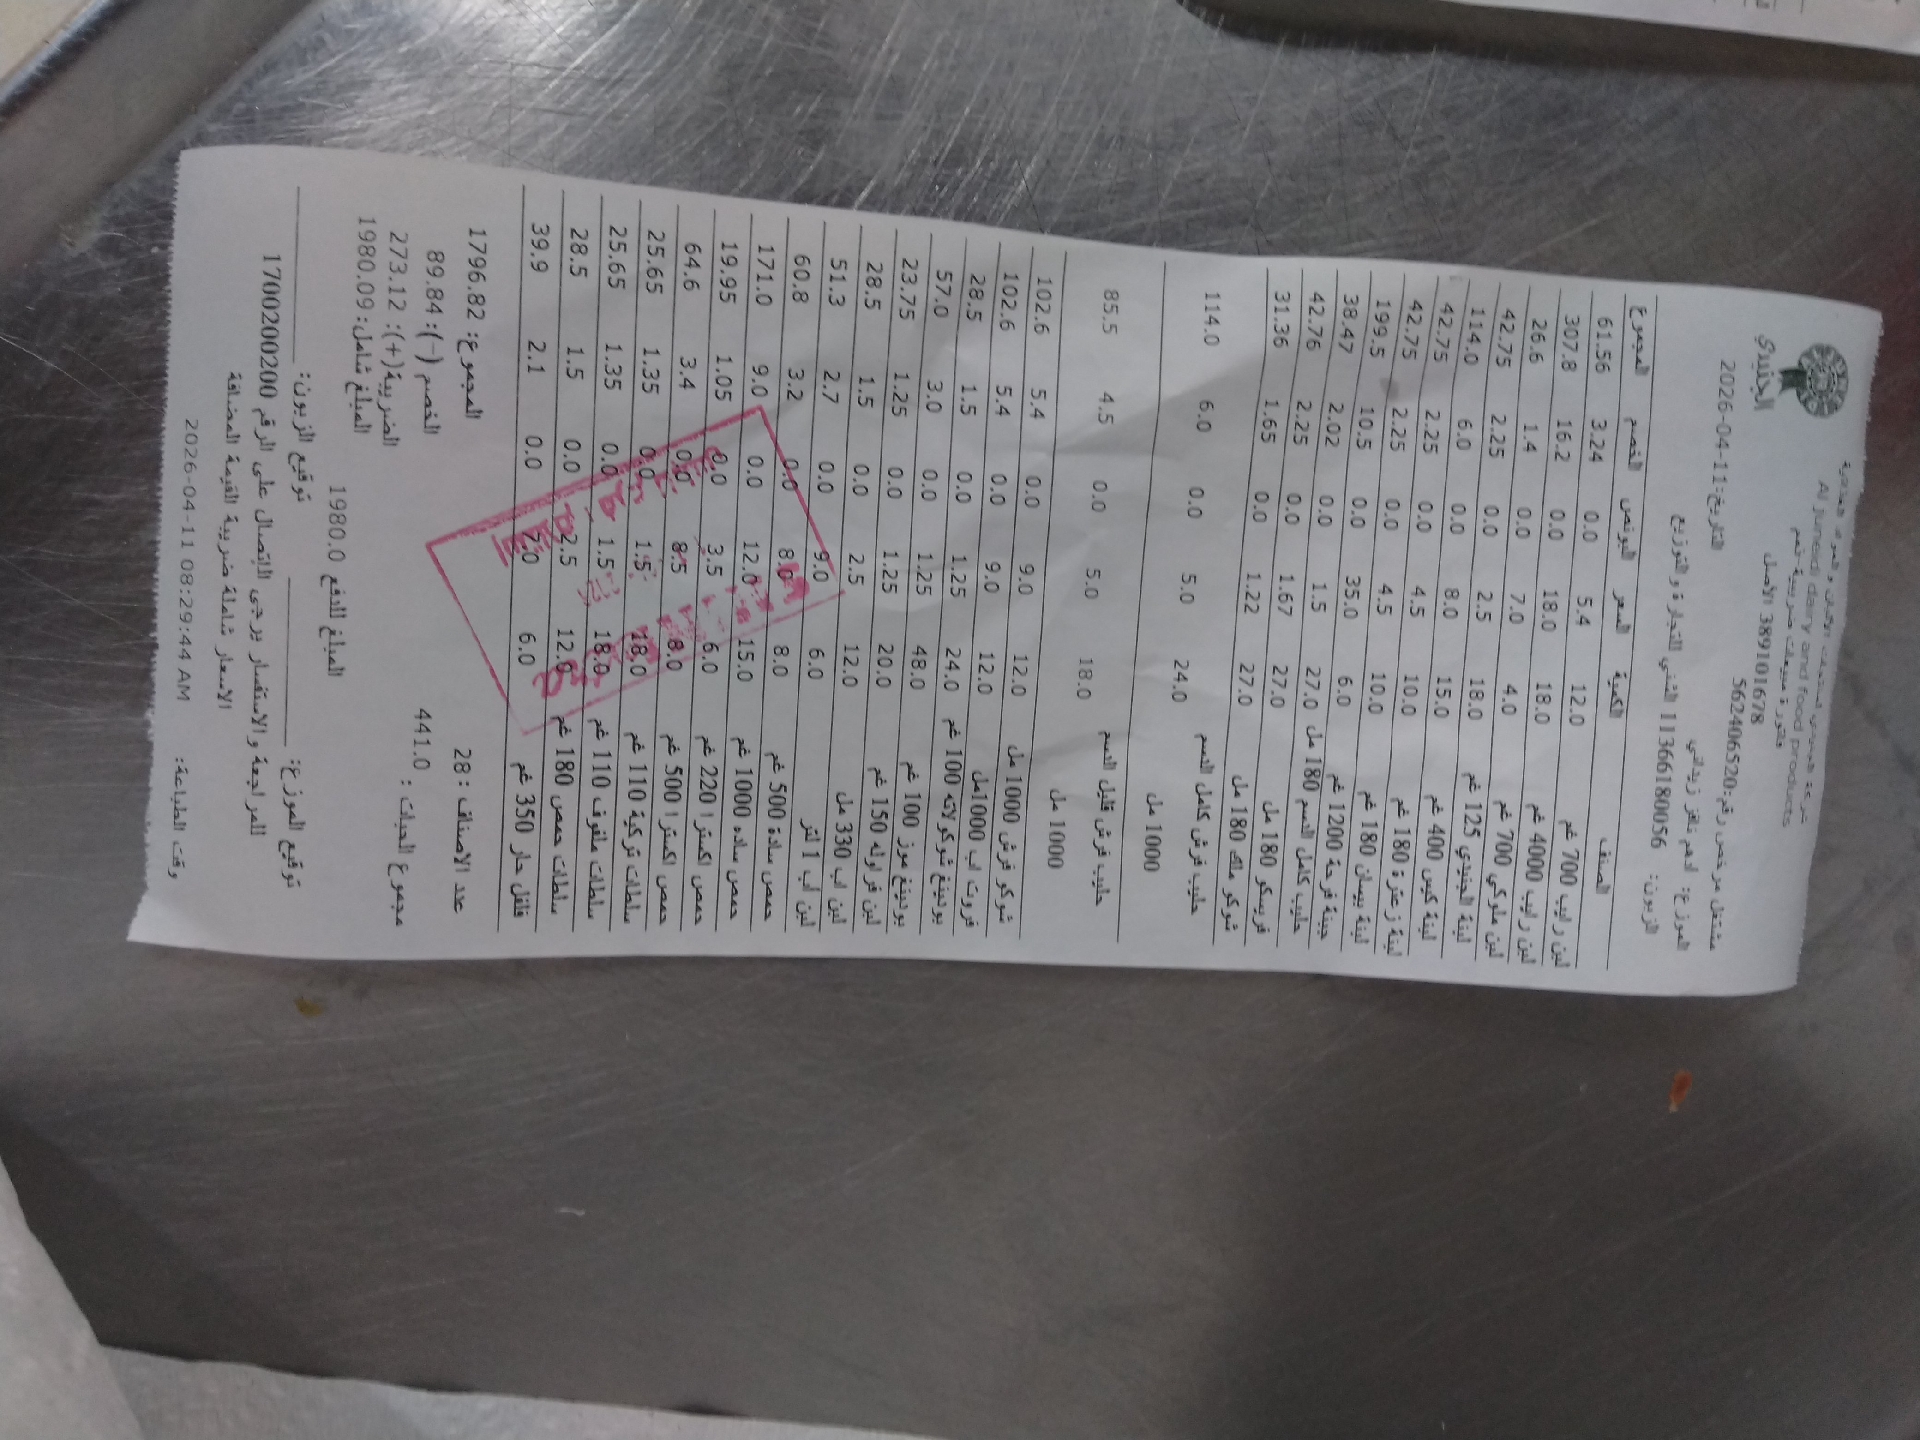 شركة الجنيدي لمنتجات الألبان و المواد الغذائية
Al Juneidi dairy and food products
فاتورة مبيعات ضريبية-نعم
389101678 الأصل
مشتغل مرخص رقم:562406520
الجنيدي
التاريخ:2026-04-11
الموزع: ادهم نافز زيداني
الزبون: 113661800056 الثني للتجارة و التوزيع
الصنف الكمية السعر البونص الخصم المجموع
لبن رايب 700 غم 12.0 5.4 0.0 3.24 61.56
لبن رايب 4000 غم 18.0 18.0 0.0 16.2 307.8
لبن ملوكي 700 غم 4.0 7.0 0.0 1.4 26.6
لبنة الجنيدي 125 غم 18.0 2.5 0.0 2.25 42.75
لبنة كيس 400 غم 15.0 8.0 0.0 6.0 114.0
لبنة زعترة 180 غم 10.0 4.5 0.0 2.25 42.75
لبنة بيسان 180 غم 10.0 4.5 0.0 2.25 42.75
جبنة فرحة 1200 غم 6.0 35.0 0.0 10.5 199.5
حليب كامل الدسم 180 مل 27.0 1.5 0.0 2.02 38.47
فريسكو 180 مل 27.0 1.67 0.0 2.25 42.76
شوكو ملك 180 مل 27.0 1.22 0.0 1.65 31.36
حليب فرش كامل الدسم 24.0 5.0 0.0 6.0 114.0
1000 مل
حليب فرش قليل الدسم 18.0 5.0 0.0 4.5 85.5
1000 مل
شوكو فرش 1000 مل 12.0 9.0 0.0 5.4 102.6
فروت اب 1000مل 12.0 9.0 0.0 5.4 102.6
بودينغ شوكولاته 100 غم 24.0 1.25 0.0 1.5 28.5
بودينغ موز 100 غم 48.0 1.25 0.0 3.0 57.0
لبن فراوله 150 غم 20.0 1.25 0.0 1.25 23.75
لبن اب 330 مل 12.0 2.5 0.0 1.5 28.5
لبن اب 1 لتر 6.0 9.0 0.0 2.7 51.3
حمص سادة 500 غم 8.0 8.0 0.0 3.2 60.8
حمص ساده 1000 غم 15.0 12.0 0.0 9.0 171.0
حمص اكسترا 220 غم 6.0 3.5 0.0 1.05 19.95
حمص اكسترا 500 غم 8.0 8.5 0.0 3.4 64.6
سلطات تركية 110 غم 18.0 1.5 0.0 1.35 25.65
سلطات ملفوف 110 غم 18.0 1.5 0.0 1.35 25.65
سلطات حمص 180 غم 12.0 2.5 0.0 1.5 28.5
فلفل حار 350 غم 6.0 7.0 0.0 2.1 39.9
عدد الاصناف : 28 المجموع: 1796.82
مجموع الحبات : 441.0 الخصم (-): 89.84
الضريبة(+): 273.12
المبلغ شامل: 1980.09
المبلغ للدفع 1980.0
توقيع الموزع: توقيع الزبون:
للمراجعة و الاستفسار يرجى الاتصال على الرقم 1700200200
الاسعار شاملة ضريبة القيمة المضافة
وقت الطباعة: 2026-04-11 08:29:44 AM